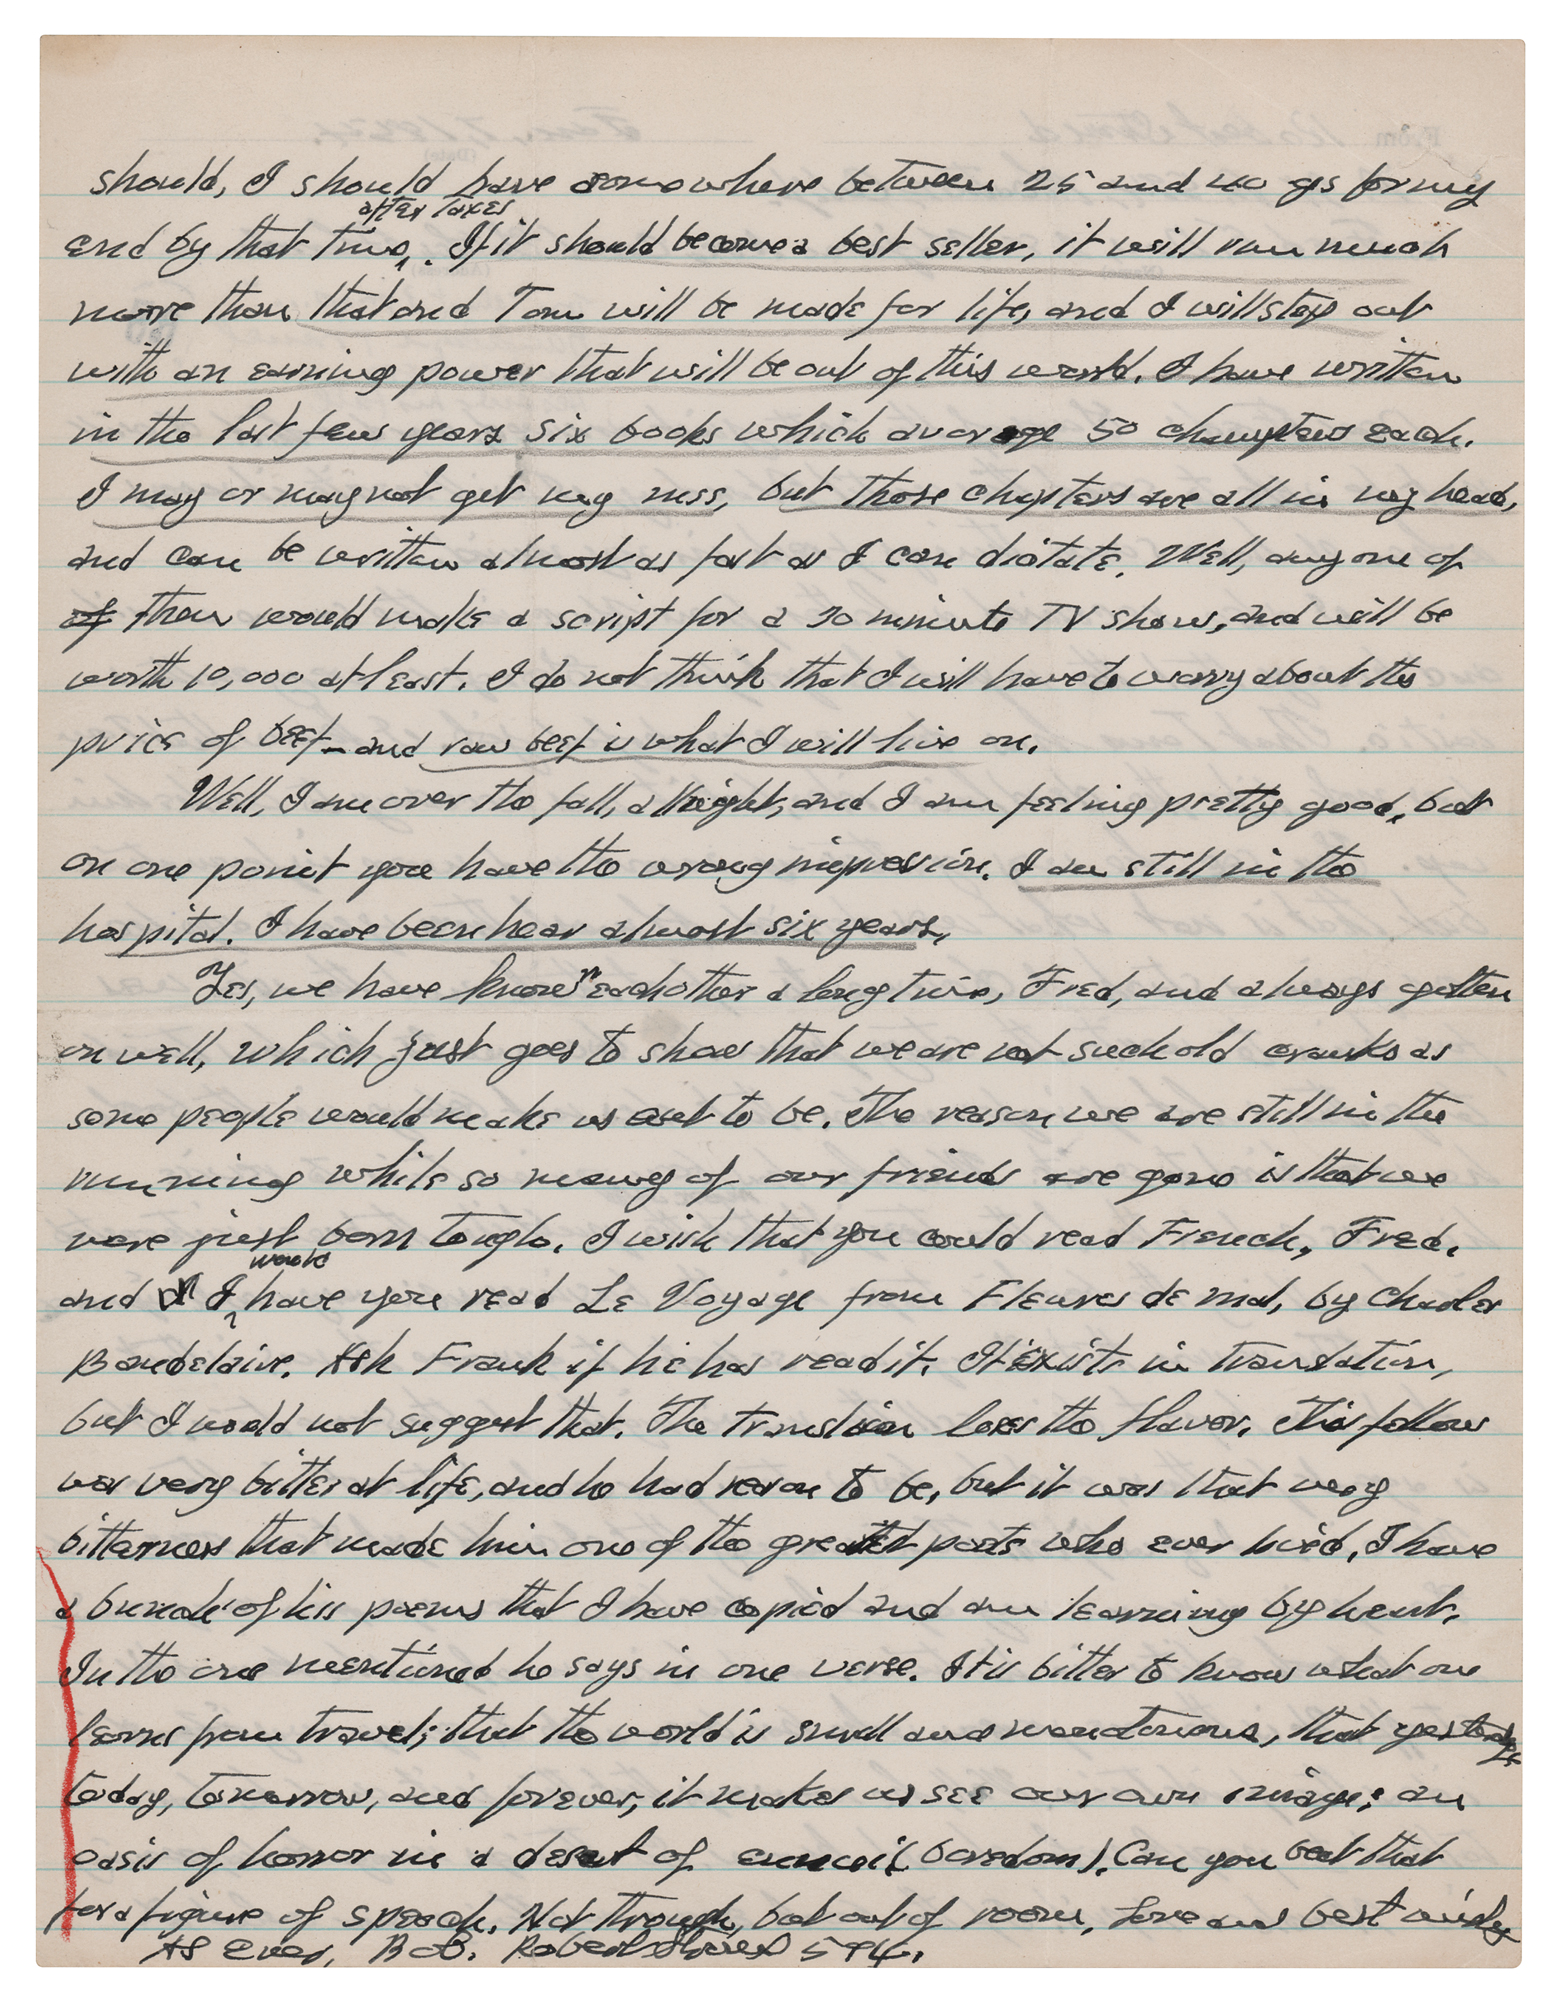 should, I should have somewhere between 25 and 40 gs for my
after taxes
end by that time. If it should become a best seller, it will run much
more than that and Tom will be made for life, and I will step out
with an earning power that will be out of this world. I have written
in the last few years six books which average 50 chapters each.
I may or may not get my mss, but those chapters are all in my head,
and can be written almost as fast as I can dictate. Well, any one of
of them would make a script for a 30 minute TV show, and will be
worth 10,000 at least. I do not think that I will have to worry about the
price of beef - and raw beef is what I will live on.
Well, I am over the fall, alright, and I am feeling pretty good, but
on one point you have the wrong impression. I am still in the
hospital. I have been hear almost six years.
Yes, we have known each other a long time, Fred, and always gotten
on well, which just goes to show that we are not such old cranks as
some people would make us out to be. The reason we are still in the
running while so many of our friends are gone is that we
were just born tough. I wish that you could read French, Fred,
would
and I have you read Le Voyage from Fleures de mal, by Charles
Baudelaire. Ask Frank if he has read it. It exists in translation,
but I would not suggest that. The translaion loses the flavor. This fellow
was very bitter at life, and he had reason to be, but it was that very
bitterness that made him one of the greatest poets who ever lived. I have
a bunch of his poems that I have copied and am learning by heart.
In the one mentioned he says in one verse. It is bitter to know what one
learns from travel; that the world is small and monotonous, that yesterday,
today, tomorrow, and forever, it makes us see our own image; an
oasis of horror in a desert of ennui (boredom). Can you beat that
for a figure of speech. Not through, but out of room. Love and best
As Ever, Bob. Robert Stroud 594.